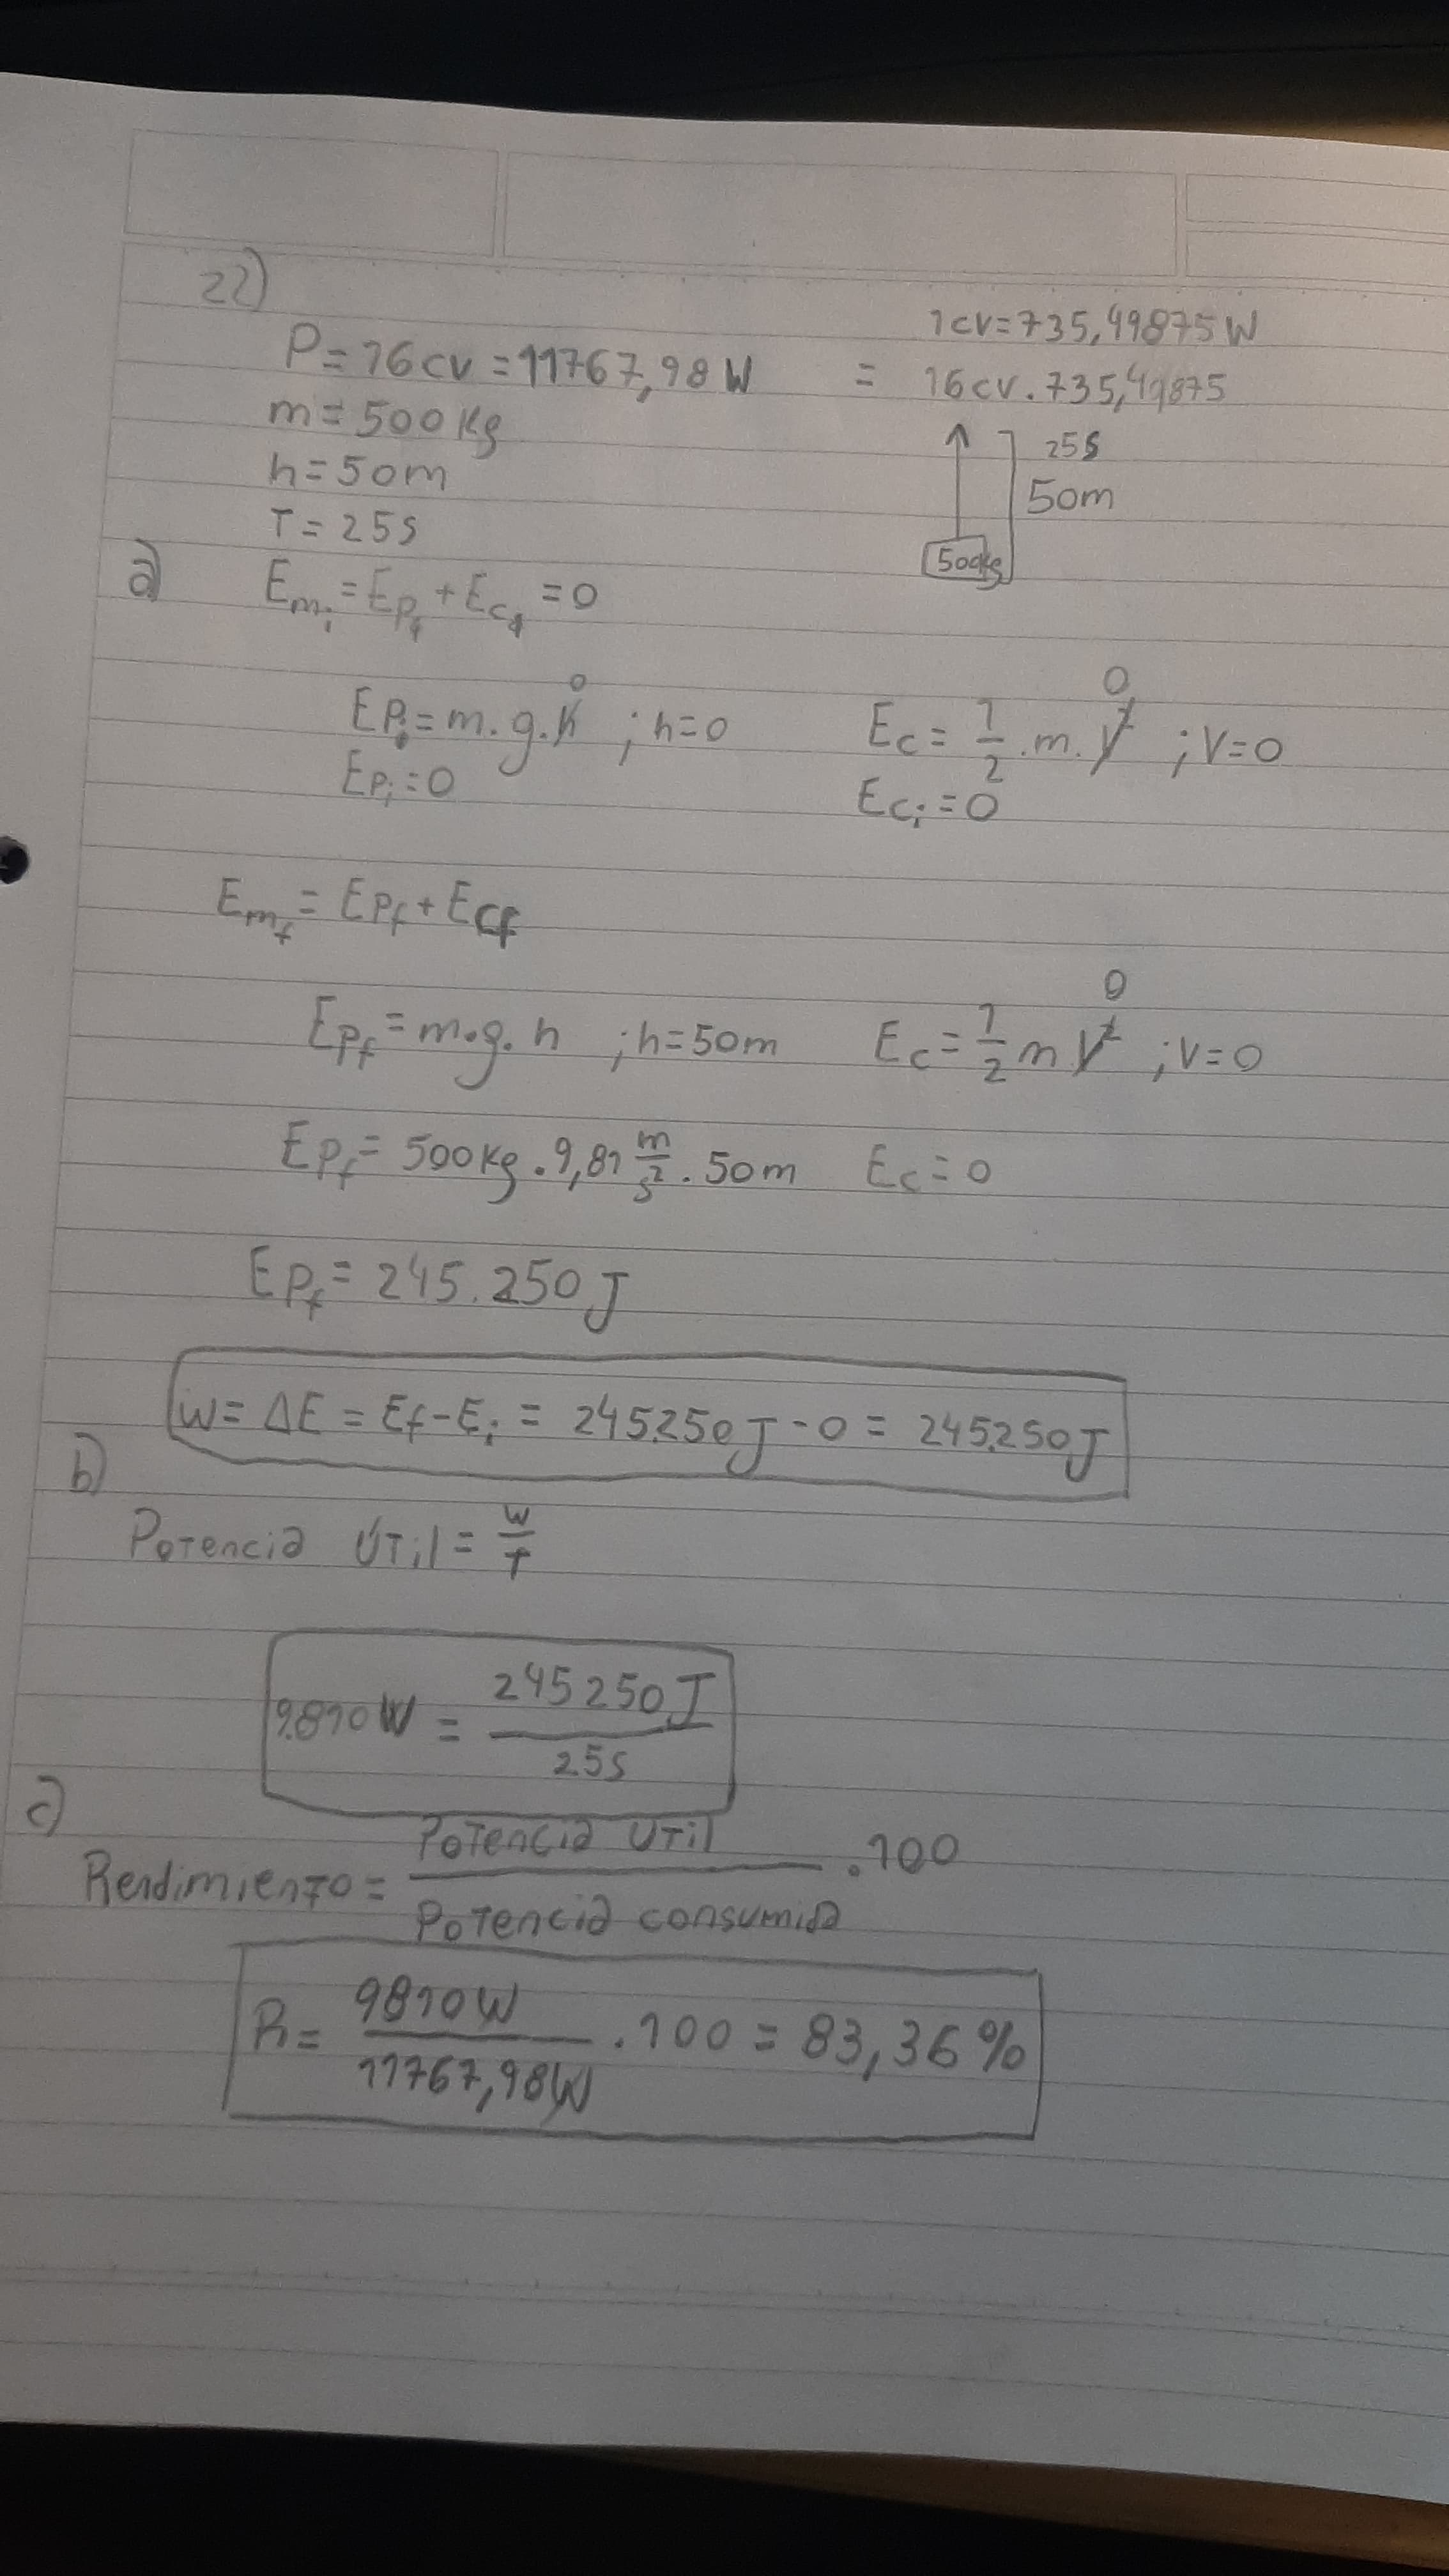 22)
1cv=735,49875W
P=16cv=11767,98W = 16cv.735,49875
m=500Kg
h=50m
T=25s
25s
50m
500kg
a) Emi=Ep1+Ec1=0
0 0
Epi=m.g.h ;h=0 Ec=1/2.m.V² ;V=0
Epi=0 Eci=0
Emf=Epf+Ecf
0
Epf=m.g.h ;h=50m Ec=1/2 m V² ;V=0
Epf=500Kg.9,81 m/s².50m Ec=0
Epf=245.250J
W=ΔE=Ef-Ei=245.250J-0=245.250J
b)
Potencia Útil=W/T
9.810W=245250J/25s
c)
Rendimiento=Potencia Util/Potencia consumida.100
R=9810W/11767,98W.100=83,36%